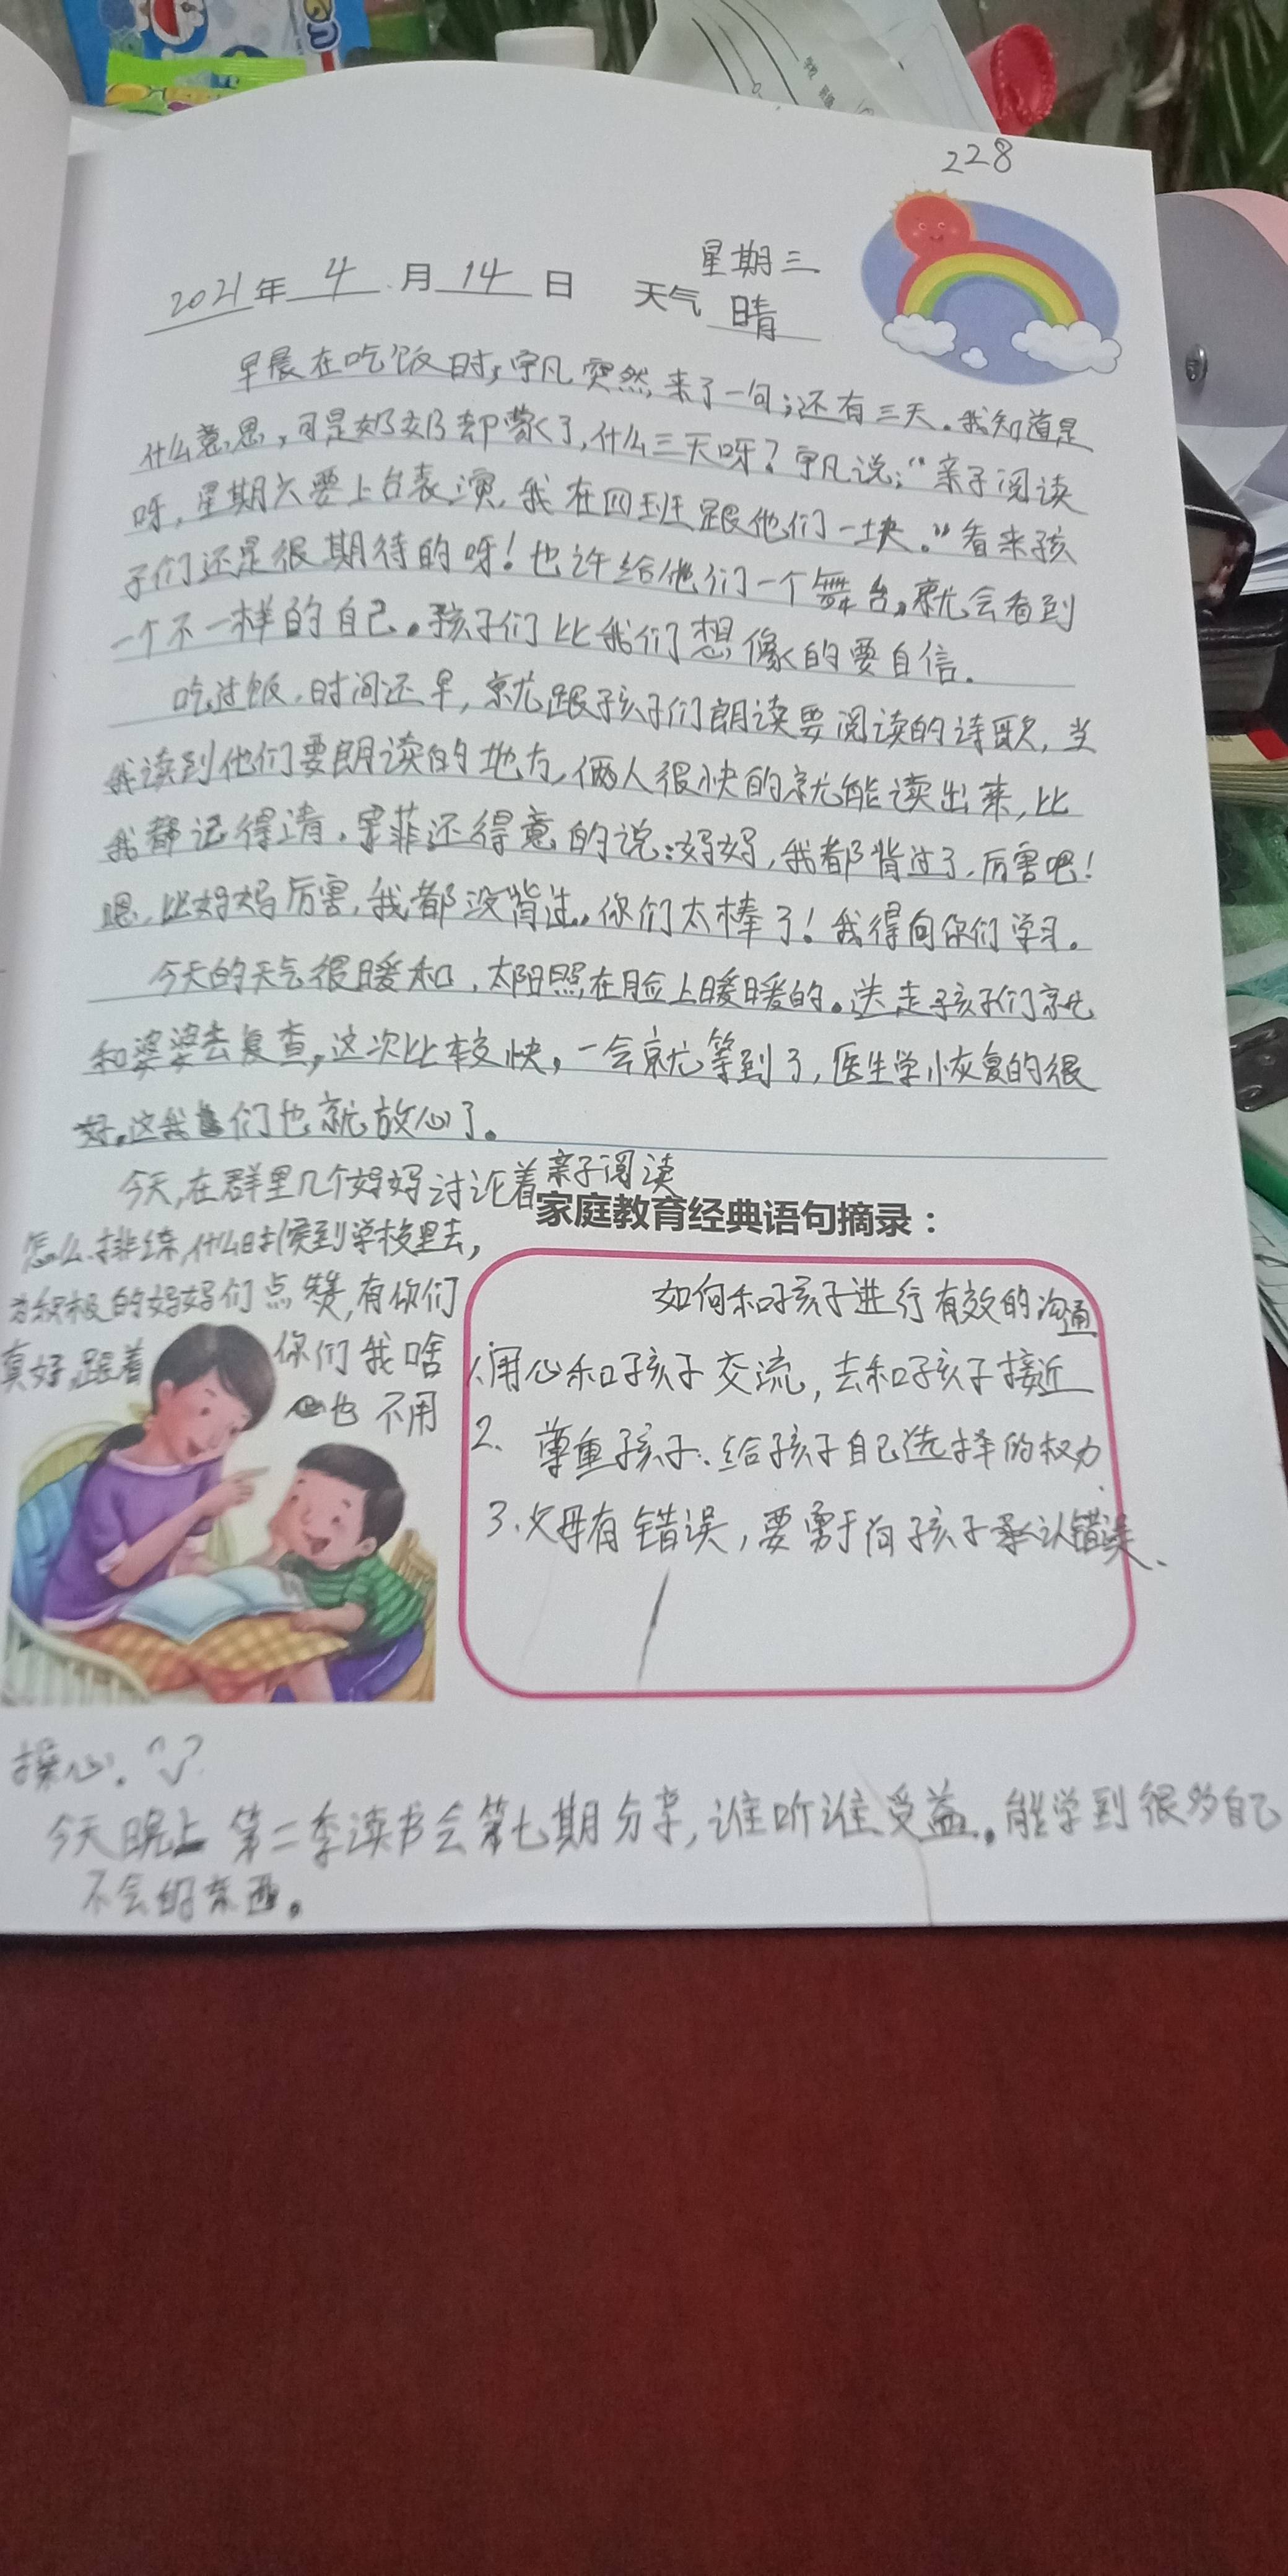 228
星期三
2021年 4 月 14 日 天气 晴
早晨在吃饭时,宇凡突然来了一句;还有三天。我知道是
什么意思,可是奶奶却蒙了,什么三天呀?宇凡说:“亲子阅读
呀,星期六要上台表演,我在四班跟他们一块。”看来孩
子们还是很期待的呀!也许给他们一个舞台,就会看到
一个不一样的自己。孩子们比我们想像的要自信。
吃过饭,时间还早,就跟孩子们朗读要阅读的诗歌,当
我读到他们要朗读的地方,俩人很快的就能读出来,比
我都记得清,菲还得意的说:妈妈,我都背过了,厉害吧!
嗯,比妈妈厉害,我都没背过,你们太棒了!我得向你们学习。
今天的天气很暖和,太阳照在脸上暖暖的。送走孩子们就
和婆婆去复查,这次比较快,一会就等到了,医生学小恢复的很
好,这我们也就放心了。
今天,在群里几个妈妈讨论着亲子阅读
家庭教育经典语句摘录:
怎么排练,什么时候到学校里去,
为积极的妈妈们点赞,有你们
真好,跟着你们我啥
也不用
如何和孩子进行有效的沟通
1、用心和孩子交流,去和孩子接近
2、尊重孩子、给孩子自己选择的权力、
3、父母有错误,要勇于向孩子承认错误、
操心。
今天晚上第二季读书会第七期分享,谁听谁受益。能学到很多自己
不会的东西。